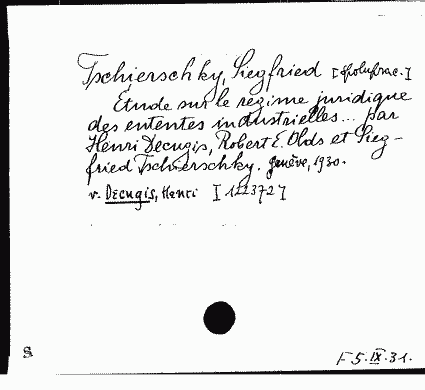 Tschierschky, Siegfried [spoluprac.]
Étude sur le regime juridique
des ententes industrielles... par
Henri Decugis, Robert E. Olds et Sieg-
fried Tschierschky. Genève, 1930.
v. Decugis, Henri [122372]
S
F 5.IX.31.